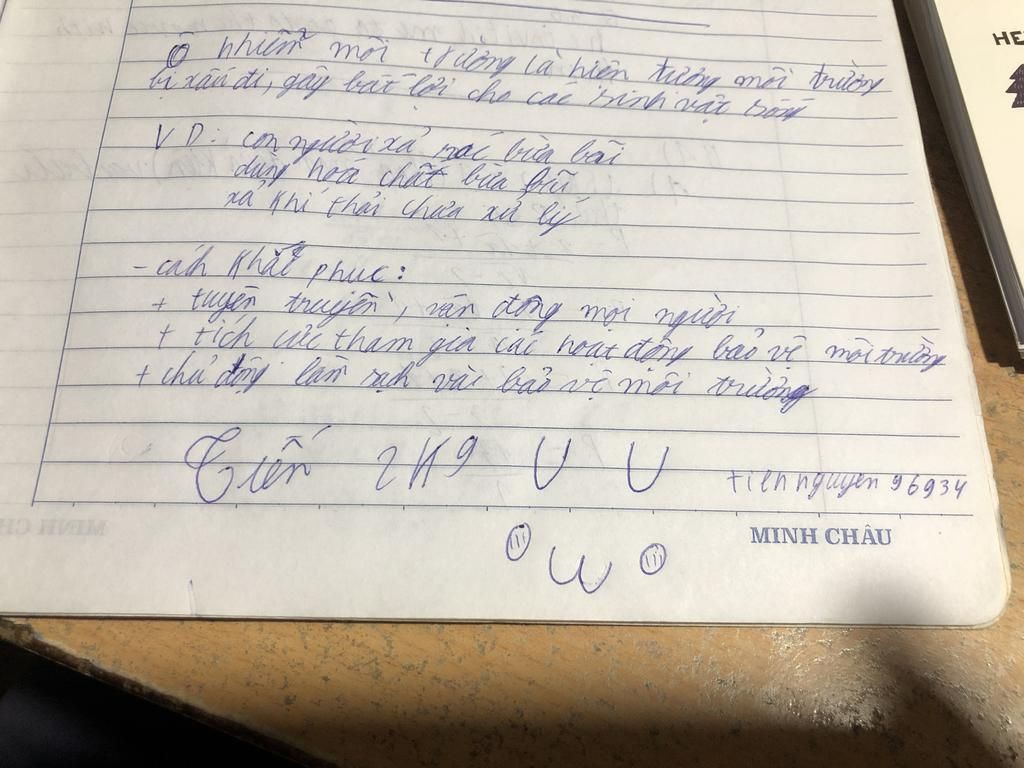 Ô nhiễm môi trường là hiện tượng môi trường
bị xấu đi, gây bất lợi cho các sinh vật sống
VD: con người xả rác bừa bãi
dùng hoá chất bừa bãi
xả khí thải chưa xử lý
- cách khắc phục:
+ tuyên truyền, vận động mọi người
+ tích cực tham gia các hoạt động bảo vệ môi trường
+ chủ động làm sạch và bảo vệ môi trường
Tiến 2K9 U U
tiennguyen96934
MINH CHÂU
HE